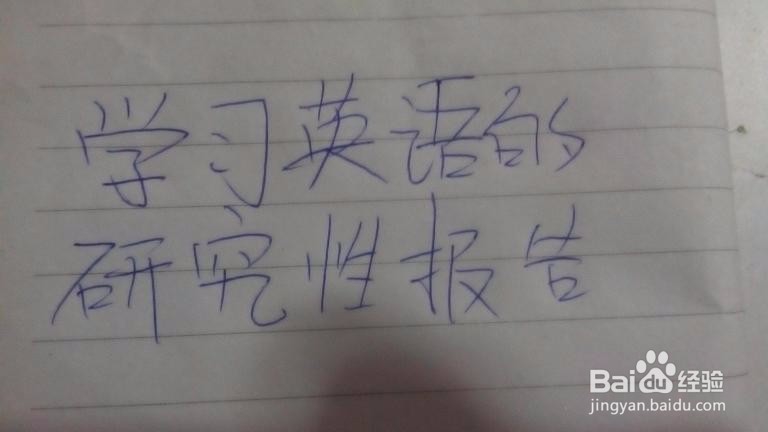 学习英语的
研究性报告
Baidu 经验
jingyan.baidu.com